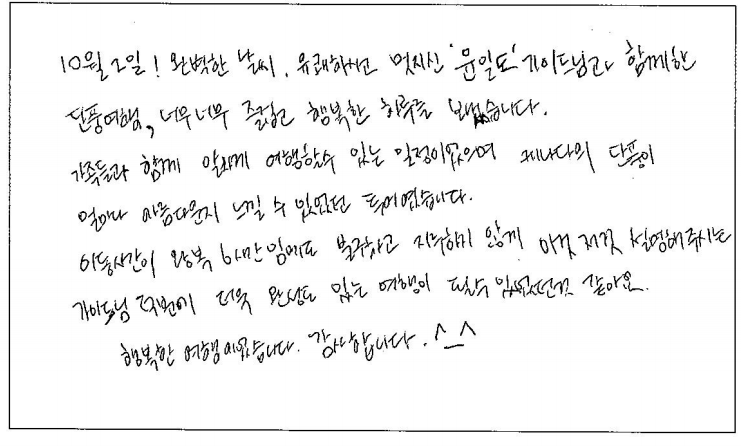 10월 2일! 완벽한 날씨. 유쾌하시고 멋지신 '윤일도' 가이드님과 함께한
단풍여행, 너무너무 즐겁고 행복한 하루를 보냈습니다.
가족들과 함께 알차게 여행할수 있는 일정이었으며 캐나다의 단풍이
얼마나 아름다운지 느낄 수 있었던 투어였습니다.
이동시간이 왕복 6시간임에도 불구하고 지루하지 않게 이것저것 설명해주시는
가이드님 덕분에 더욱 완성도 있는 여행이 될수 있었던것 같아요.
행복한 여행이었습니다. 감사합니다. ^_^